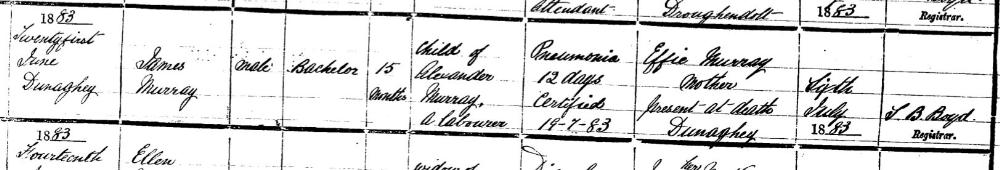 attendant Droughendolt 1883 Registrar.
1883
Twentyfirst June Dunaghey James Murray male Bachelor 15 months Child of Alexander Murray, a labourer Pneumonia 12 days Certified 19-7-83 Effie Murray Mother Present at death Dunaghey Sixth July 1883 S B Boyd Registrar.
1883
Fourteenth Ellen widow of